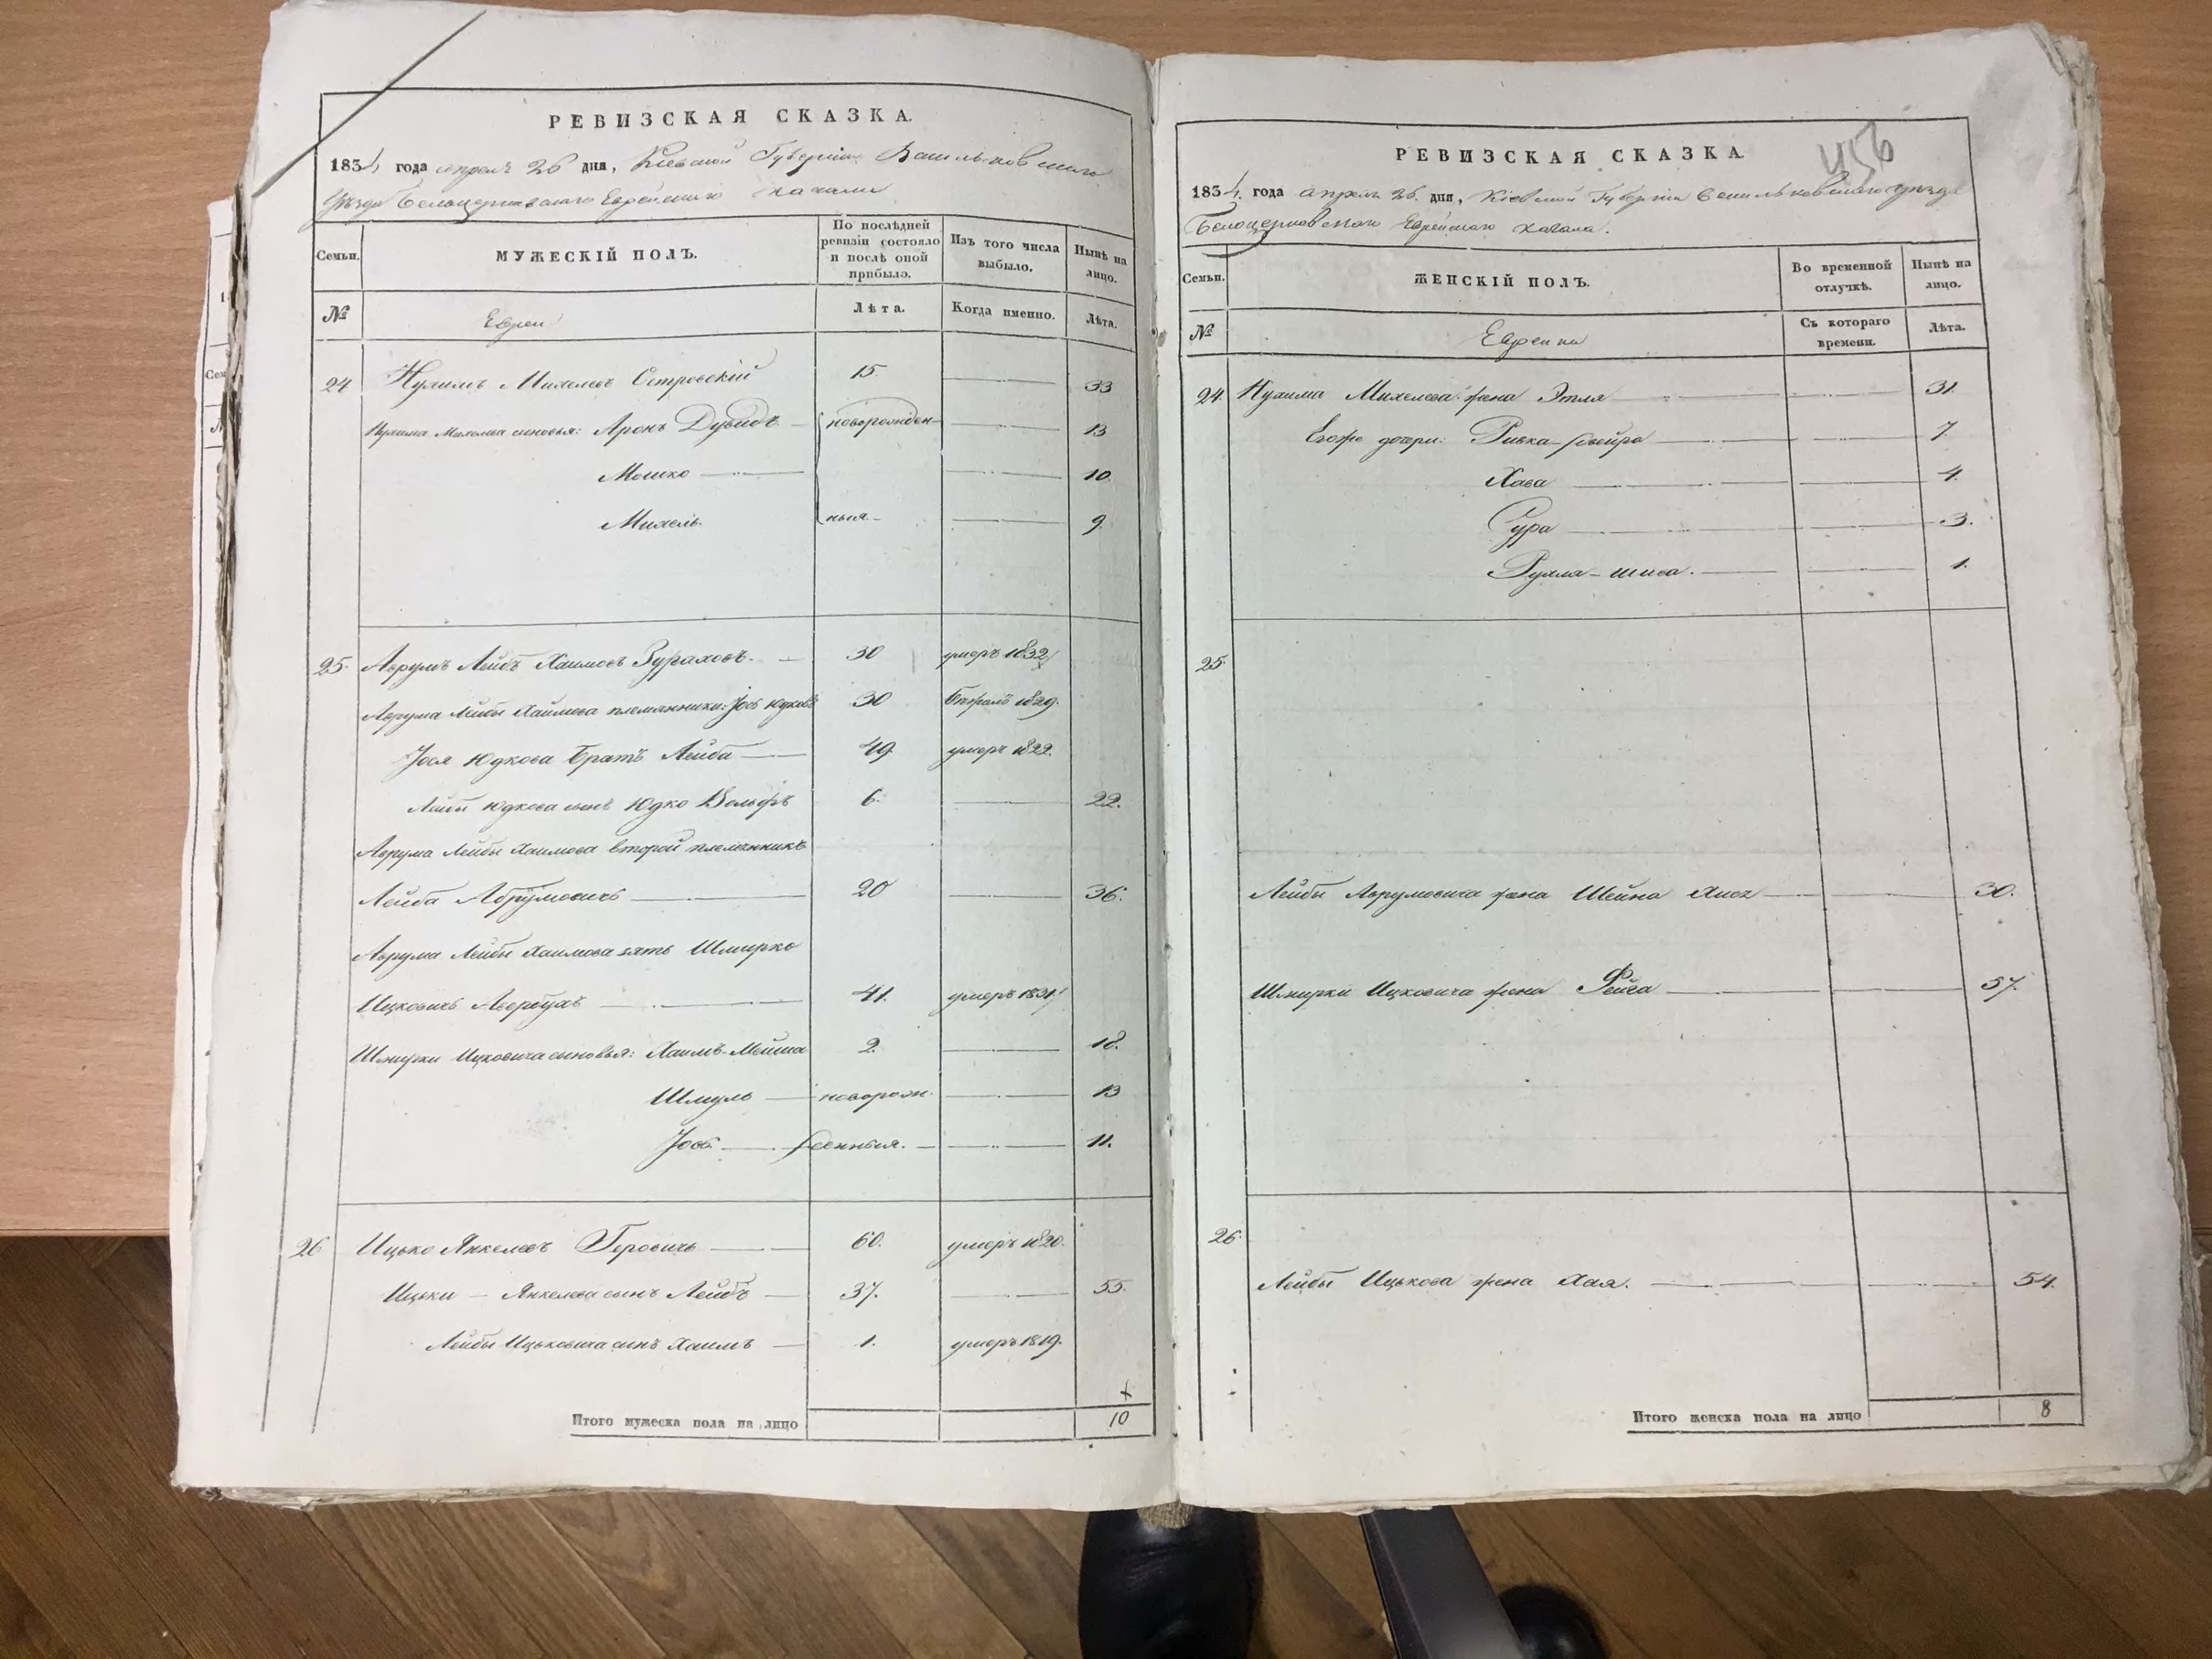 РЕВИЗСКАЯ СКАЗКА.
1834 года апреля 26 дня, Кіевской Губерніи Васильковскаго
уѣзда Белоцерковскаго Еврейскаго кагала
Семьи. МУЖЕСКІЙ ПОЛЪ. По послѣдней ревизіи состояло и послѣ оной прибыло. Изъ того числа выбыло. Нынѣ на лицо.
№ Евреи Лѣта. Когда именно. Лѣта.
24 Нухимъ Михелевъ Островскій 15. 33
Нухима Михелева сыновья: Аронъ Дувидъ новорожден- 13
Мошко 10.
Михель. ныя. 9.
25. Аврумъ Лейбъ Хаимовъ Зураховъ. 30 умеръ 1832
Аврума Лейбы Хаимова племянники: Іось Юдковъ 30 1829.
Іося Юдкова братъ Лейба 49. умеръ 1822.
Лейбы Юдкова сынъ Юдко Вольфъ 6. 22.
Аврума Лейбы Хаимова второй племянникъ
Лейба Абрумовичъ 20 36.
Аврума Лейбы Хаимова зять Шмирко
Ицковичъ Авербухъ 41. умеръ 1831
Шмирки Ицковича сыновья: Хаимъ-Мейша 2. 18.
Шмуль новорож. 13
Іось денныя. 11.
26 Ицько Янкелевъ Геровичъ 60. умеръ 1820.
Ицьки Янкелева сынъ Лейбъ 37. 55.
Лейбы Ицьковича сынъ Хаимъ 1. умеръ 1819.
Итого мужеска пола на лицо 10
456
РЕВИЗСКАЯ СКАЗКА.
1834. года апреля 26. дня, Кіевской Губерніи Васильковскаго уѣзда
Белоцерковскаго Еврейскаго кагала.
Семьи. ЖЕНСКІЙ ПОЛЪ. Во временной отлучкѣ. Нынѣ на лицо.
№ Еврейки Съ котораго времени. Лѣта.
24. Нухима Михелева жена Этля 31.
Егоже дочери: Ривка-Двейра 7.
Хава 4.
Сура 3.
Рухля-шива. 1.
25.
Лейбы Аврумовича жена Шейна 30.
Шмирки Ицковича жена Фейга 57.
26.
Лейбы Ицькова жена Хая. 54.
Итого женска пола на лицо 8